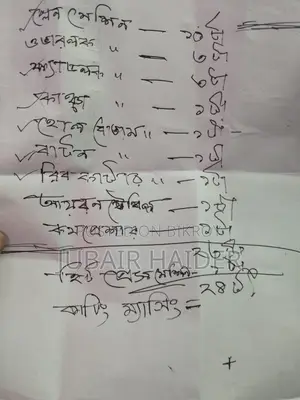 প্লেন মেশিন — ১০টি
ওভারলক " — ৬টা
ফ্যাডলক " — ৬টা
কানসু " — ১টা
হোল বোতাম " — ১টা
বাটন " — ১টা
রিব কাটার " — ১টা
আয়রন টেবিল — ১টা
কমপ্রেসার — ১টা
হিট প্রেস মেশিন
২৪টা
কাটিং ম্যাসিং =
TUBAIR HAIDER